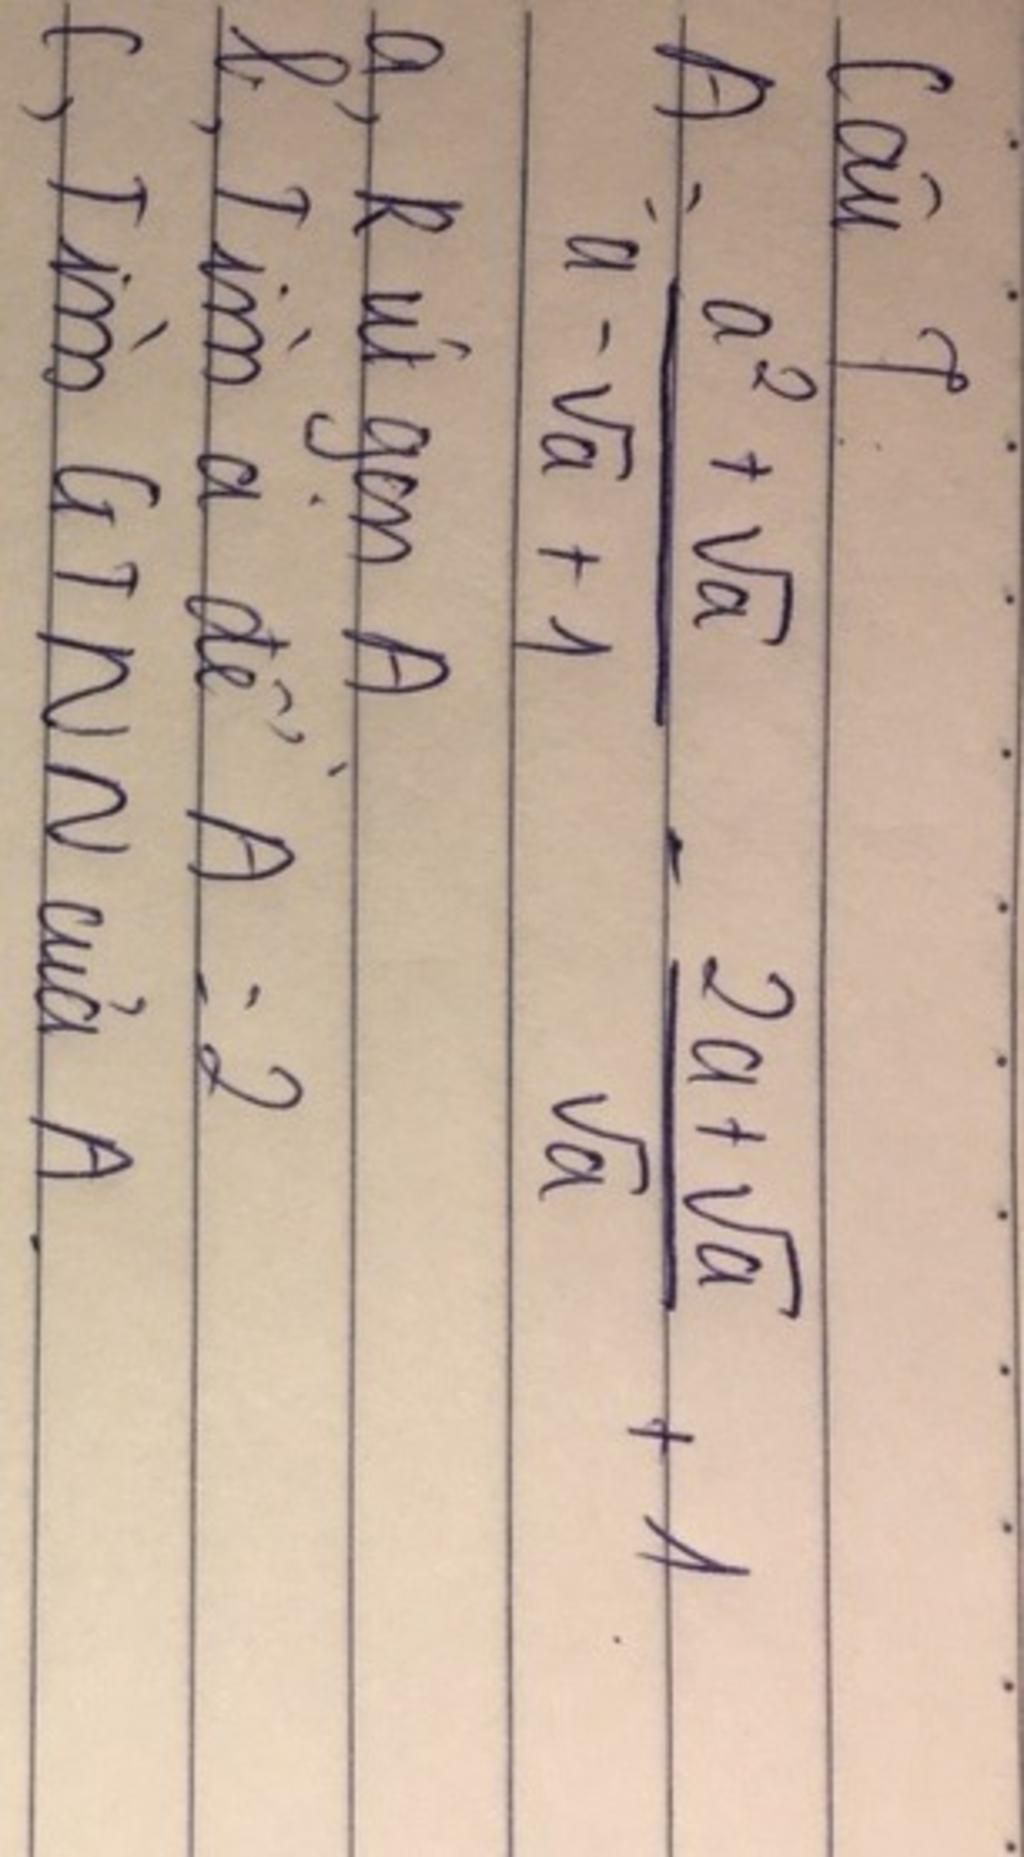 Câu I
A = \frac{a^2 + \sqrt{a}}{a - \sqrt{a} + 1} - \frac{2a + \sqrt{a}}{\sqrt{a}} + 1
a, Rút gọn A
b, Tìm a để A = 2
c, Tìm GTNN của A